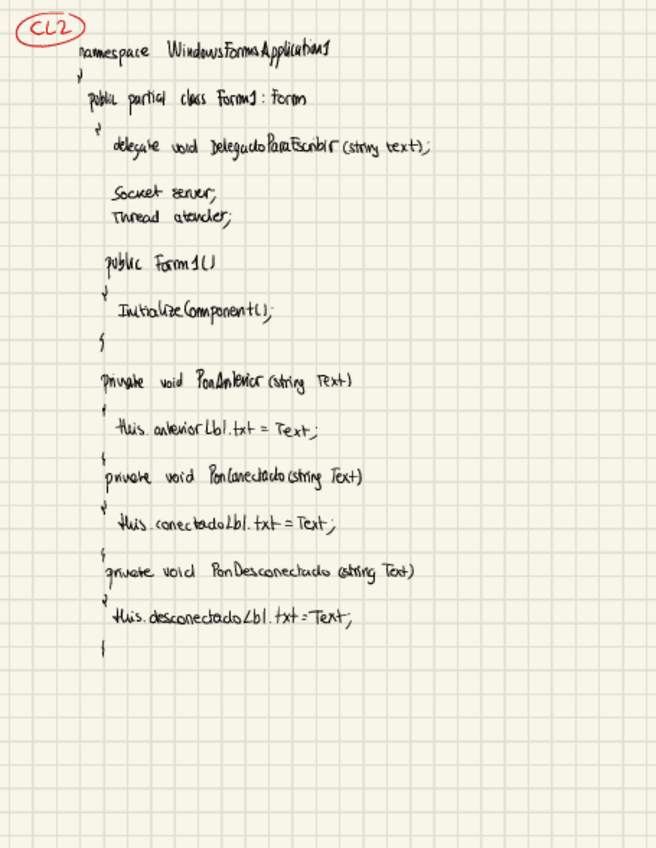 CL2
namespace WindowsFormsApplication1
{
public partial class Form1 : Form
{
delegate void DelegadoParaEscribir (string text);
Socket server;
Thread atender;
public Form1()
{
InitializeComponent();
}
private void PonAnterior (string Text)
{
this.anteriorLbl.txt = Text;
}
private void PonConectado (string Text)
{
this.conectadoLbl.txt = Text;
}
private void PonDesconectado (string Text)
{
this.desconectadoLbl.txt = Text;
}